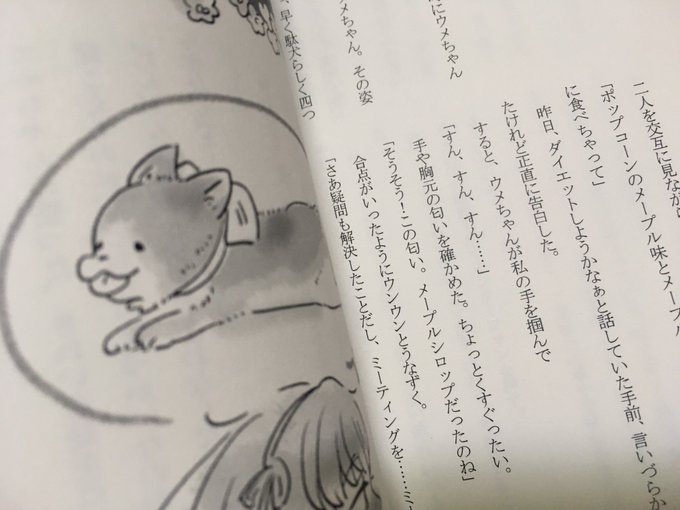 二人を交互に見ながら
「ポップコーンのメープル味とメープル
に食べちゃって」
昨日、ダイエットしようかなぁと話していた手前、言いづらか
たけれど正直に告白した。
すると、ウメちゃんが私の手を掴んで
「すん、すん、すん……」
手や胸元の匂いを確かめた。ちょっとくすぐったい。
「そうそう！この匂い。メープルシロップだったのね」
合点がいったようにウンウンとうなずく。
「さあ疑問も解決したことだし、ミーティングを……ミー
にウメちゃん
ウメちゃん。その姿
、早く駄犬らしく四つ